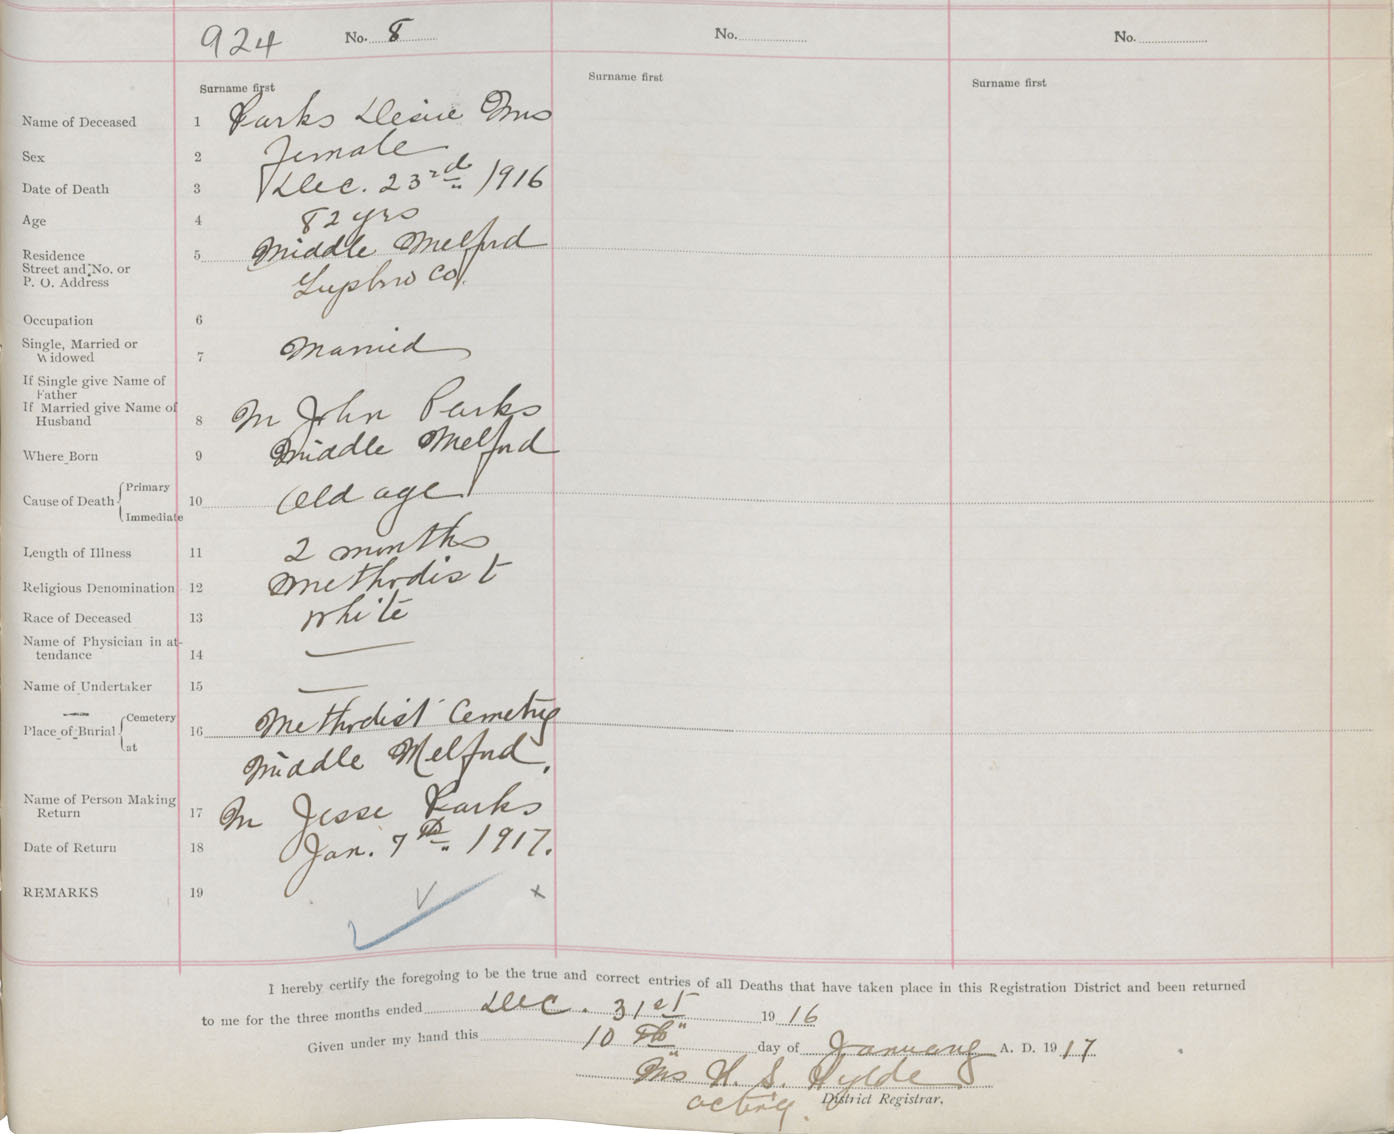 924 No. 8 No. No.
Surname first Surname first Surname first
Name of Deceased 1 Parks Desire Mrs
Sex 2 Female
Date of Death 3 Dec. 23rd 1916
Age 4 82 yrs
Residence 5 Middle Melford
Street and No. or
P. O. Address Guysboro Co.
Occupation 6
Single, Married or
Widowed 7 Married
If Single give Name of
Father
If Married give Name of
Husband 8 Mr John Parks
Where Born 9 Middle Melford
Cause of Death { Primary
10 Old age
Immediate
Length of Illness 11 2 months
Religious Denomination 12 Methodist
Race of Deceased 13 white
Name of Physician in at-
tendance 14 —
Name of Undertaker 15 —
Place of Burial { Cemetery 16 Methodist Cemetry
at Middle Melford.
Name of Person Making
Return 17 Mr Jesse Parks
Date of Return 18 Jan. 7th 1917.
REMARKS 19
I hereby certify the foregoing to be the true and correct entries of all Deaths that have taken place in this Registration District and been returned
to me for the three months ended Dec. 31st 19 16
Given under my hand this 10th day of January A. D. 19 17
Mrs H. S. Hylde
acting District Registrar.